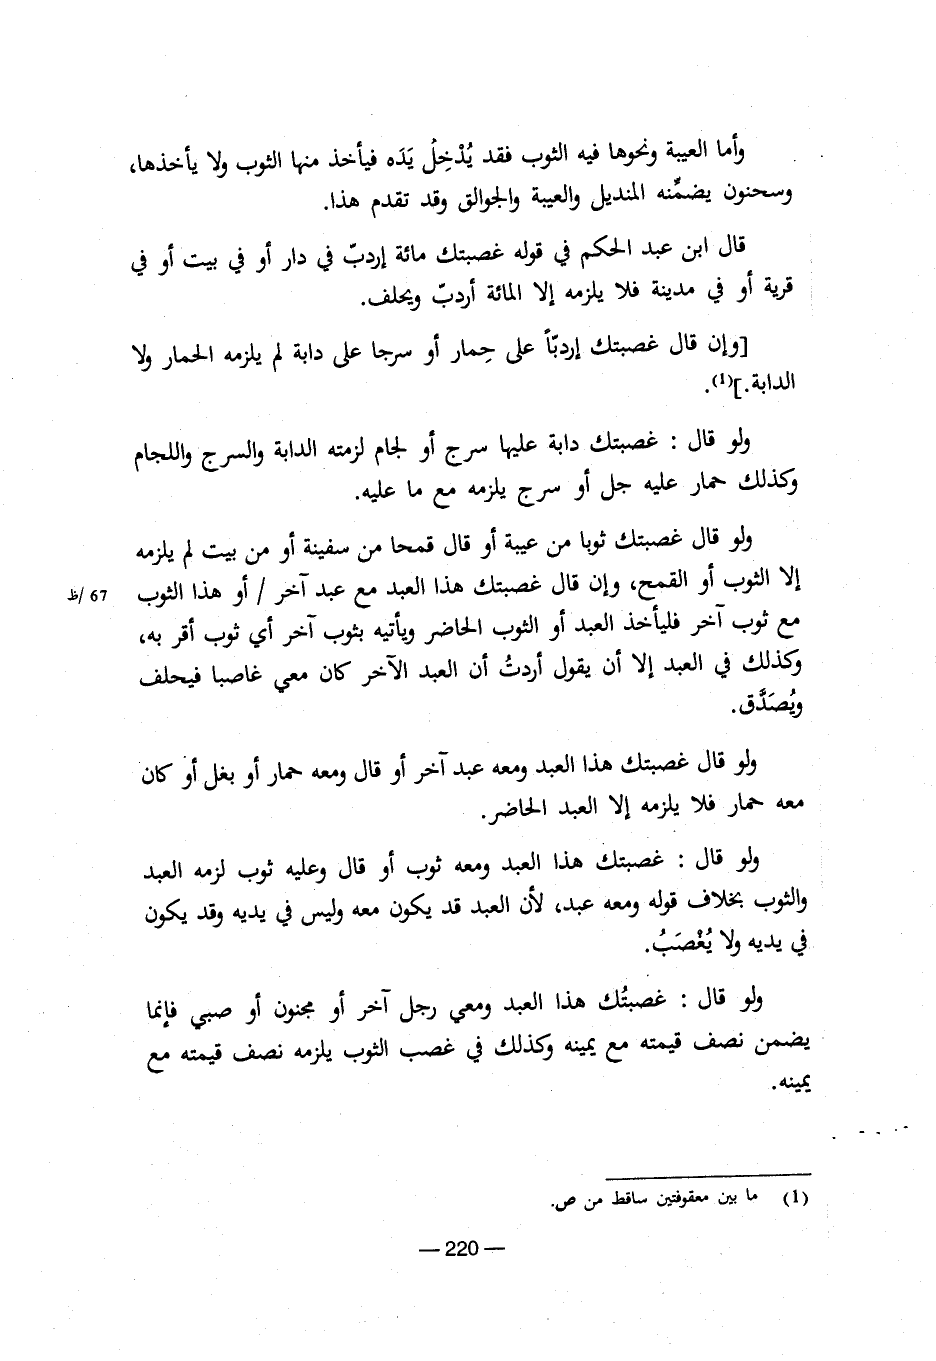 وأما العيبة ونحوها فيه الثوب فقد يُدْخِلُ يَدَه فيأخذ منها الثوب ولا يأخذها،
وسحنون يضمِّنه المنديل والعيبة والجوالق وقد تقدم هذا.
قال ابن عبد الحكم في قوله غصبتك مائة إردبّ في دار أو في بيت أو في
قرية أو في مدينة فلا يلزمه إلا المائة أردبّ ويحلف.
[وإن قال غصبتك إردبّاً على حِمار أو سرجا على دابة لم يلزمه الحمار ولا
الدابة.](1).
ولو قال : غصبتك دابة عليها سرج أو لجام لزمته الدابة والسرج واللجام
وكذلك حمار عليه جل أو سرج يلزمه مع ما عليه.
ولو قال غصبتك ثوبا من عيبة أو قال قمحا من سفينة أو من بيت لم يلزمه
إلا الثوب أو القمح، وإن قال غصبتك هذا العبد مع عبد آخر / أو هذا الثوب 67 /ظ
مع ثوب آخر فليأخذ العبد أو الثوب الحاضر ويأتيه بثوب آخر أي ثوب أقر به،
وكذلك في العبد إلا أن يقول أردتُ أن العبد الآخر كان معي غاصبا فيحلف
ويُصَدَّق.
ولو قال غصبتك هذا العبد ومعه عبد آخر أو قال ومعه حمار أو بغل أو كان
معه حمار فلا يلزمه إلا العبد الحاضر.
ولو قال : غصبتك هذا العبد ومعه ثوب أو قال وعليه ثوب لزمه العبد
والثوب بخلاف قوله ومعه عبد، لأن العبد قد يكون معه وليس في يديه وقد يكون
في يديه ولا يُغْصَبُ.
ولو قال : غصبتُك هذا العبد ومعي رجل آخر أو مجنون أو صبي فإنما
يضمن نصف قيمته مع يمينه وكذلك في غصب الثوب يلزمه نصف قيمته مع
يمينه.
(1) ما بين معقوفتين ساقط من ص.
— 220 —